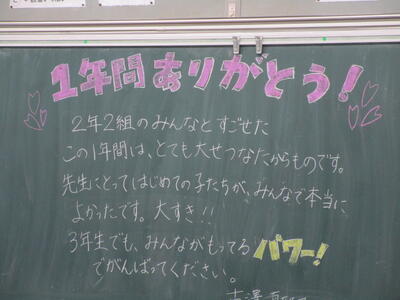 1年間ありがとう!
2年2組のみんなとすごせた
この1年間は、とても大せつなたからものです。
先生にとってはじめての子たちが、みんなで本当に
よかったです。大すき!!
3年生でも、みんながもってるパワー!
でがんばってください。